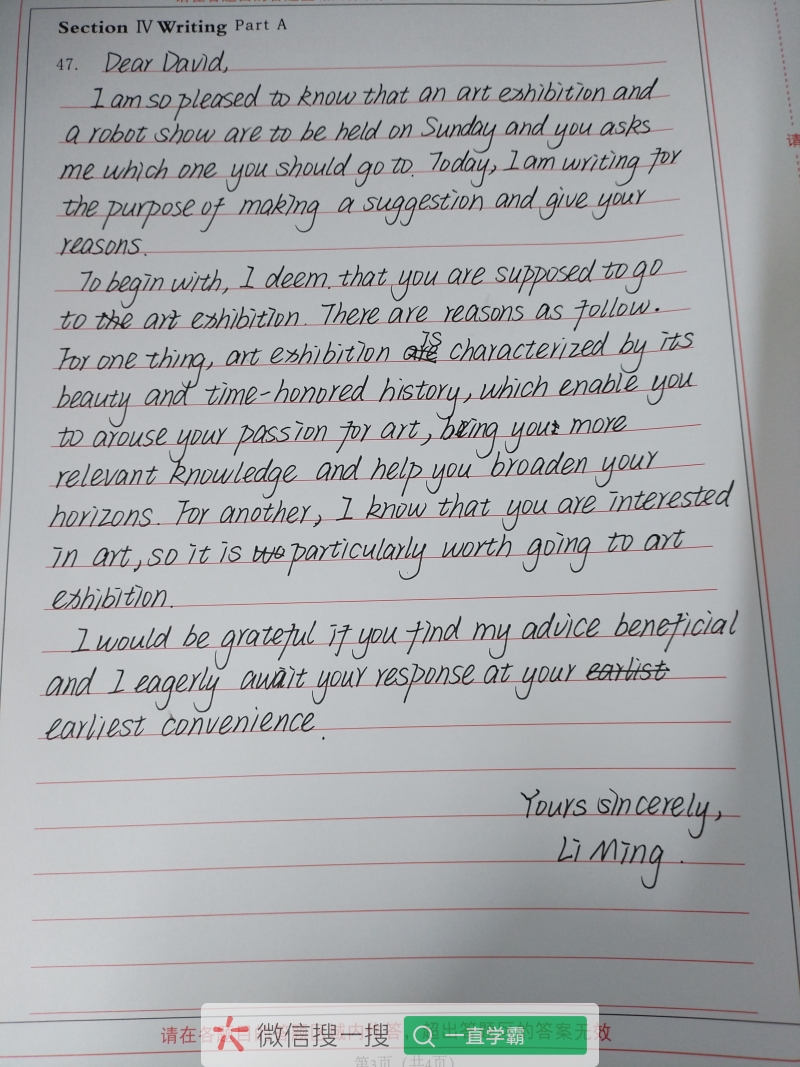 Section Ⅳ Writing Part A
47. Dear David,
I am so pleased to know that an art exhibition and
a robot show are to be held on Sunday and you asks
me which one you should go to. Today, I am writing for
the purpose of making a suggestion and give your
reasons.
To begin with, I deem that you are supposed to go
to the art exhibition. There are reasons as follow.
For one thing, art exhibition is characterized by its
beauty and time-honored history, which enable you
to arouse your passion for art, bring you more
relevant knowledge and help you broaden your
horizons. For another, I know that you are interested
in art, so it is particularly worth going to art
exhibition.
I would be grateful if you find my advice beneficial
and I eagerly await your response at your earlist
earliest convenience.
Yours sincerely,
Li Ming.
请在各
答
的答案无效
微信搜一搜
一直学霸
第3页（共4页）